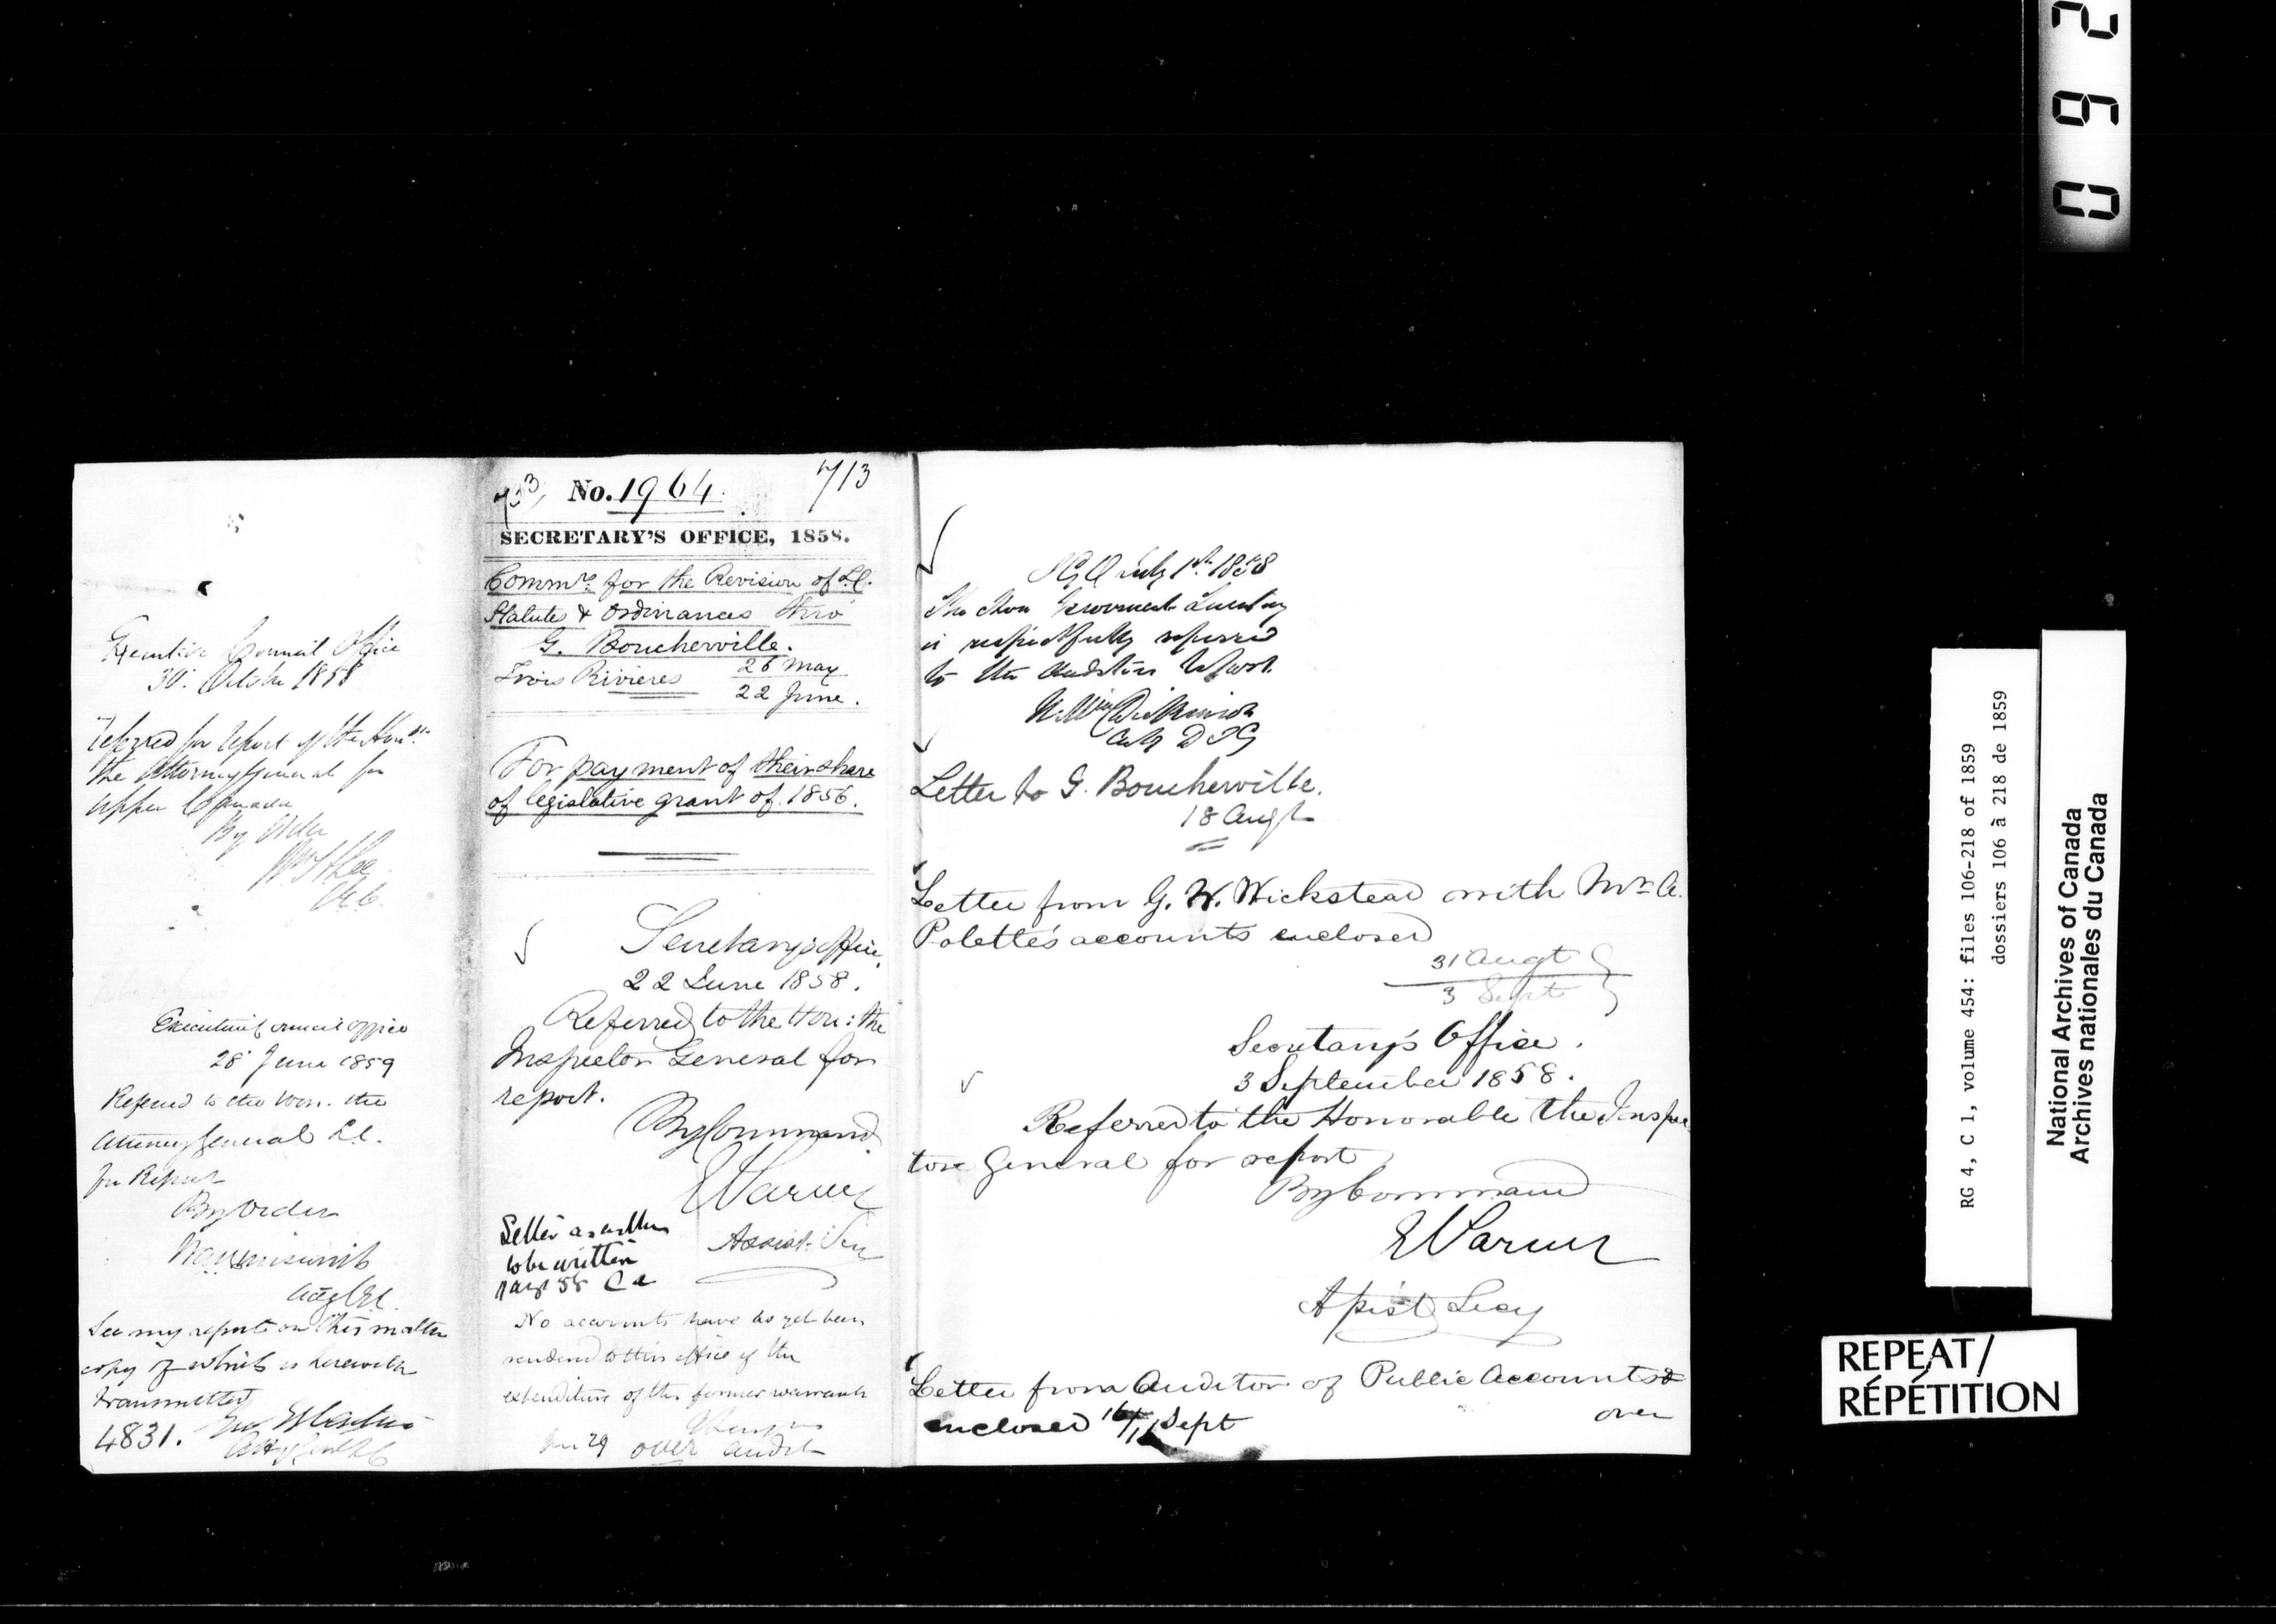 Executive Council Office
30 October 1858
Referred for report of the Honble
the Attorney General for
Upper Canada
By Order
Wm H Lee
Executive Council Office
28 June 1859
Referred to the Hon. the
Attorney General L.C.
for Report
By Order
See my report on this matter
copy of which is herewith
transmitted
4831.
733, No. 1964. 713
SECRETARY'S OFFICE, 1858.
Commrs for the Revision of L.C.
Statutes & Ordinances thro'
G. Boucherville.
Trois Rivieres 26 May
22 June.
For payment of their share
of legislative grant of 1856.
Secretary's Office,
22 June 1858.
Referred to the Hon: the
Inspector General for
report.
By Command
E Parent
Assist: Secy
Letter as within
to be written
No accounts have as yet been
rendered to this office of the
expenditure of the former warrants
Jun 29 over Audit
I G O July 1st 1858
The Hon
is respectfully referred
to the Auditors Report
Letter to G. Boucherville.
18 Augt
Letter from G. W. Wicksteed with Mr A.
Polette's accounts enclosed
31 Augt
3 Sept
Secretary's Office.
3 September 1858.
Referred to the Honorable the Inspec
tor General for report
By Command
E Parent
Assist Secy
Letter from Auditor of Public Accounts &
enclosed 16/ Sept
over
092
RG 4, C 1, volume 454: files 106-218 of 1859
dossiers 106 à 218 de 1859
National Archives of Canada
Archives nationales du Canada
REPEAT/
RÉPÉTITION